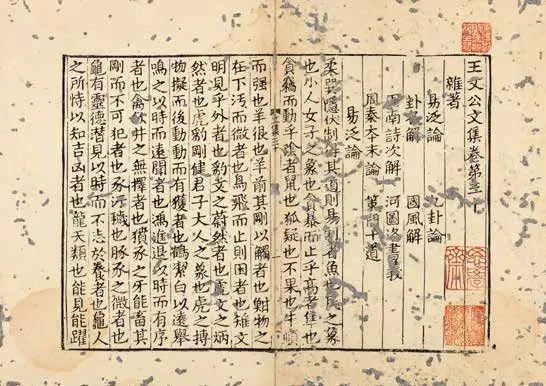 王文公文集卷第三十
雜著
易泛論 九卦論
卦名解 國風解
周南詩次解 河圖洛書義
周秦本末論 策問十道
易泛論
柔巽隱伏制得其道則易制者魚也民之象
也小人女子之象也貪暴而止乎高者隼也
貪竊而動乎陰者鼠也狐疑也不果也牛順
而强也羊很也羊前其剛以觸者也對物之
在下汚而微者也鳥飛而止則困者也雉文
明見乎外者也豹文之蔚然者也虎文之炳
然者也虎豹剛健君子大人之象也虎之搏
物擬而後動動而有獲者也鶴潔白以遠舉
鳴之以時而遠聞者也鴻進退以時而有序
者也禽飲井之無擇者也豶豕之牙能畜其
剛而不可犯者也豕汚穢也豚豕之微者也
龜有靈德潛見以時而不志於養者也龜人
之所恃以知吉凶者也龍天類也能見能躍